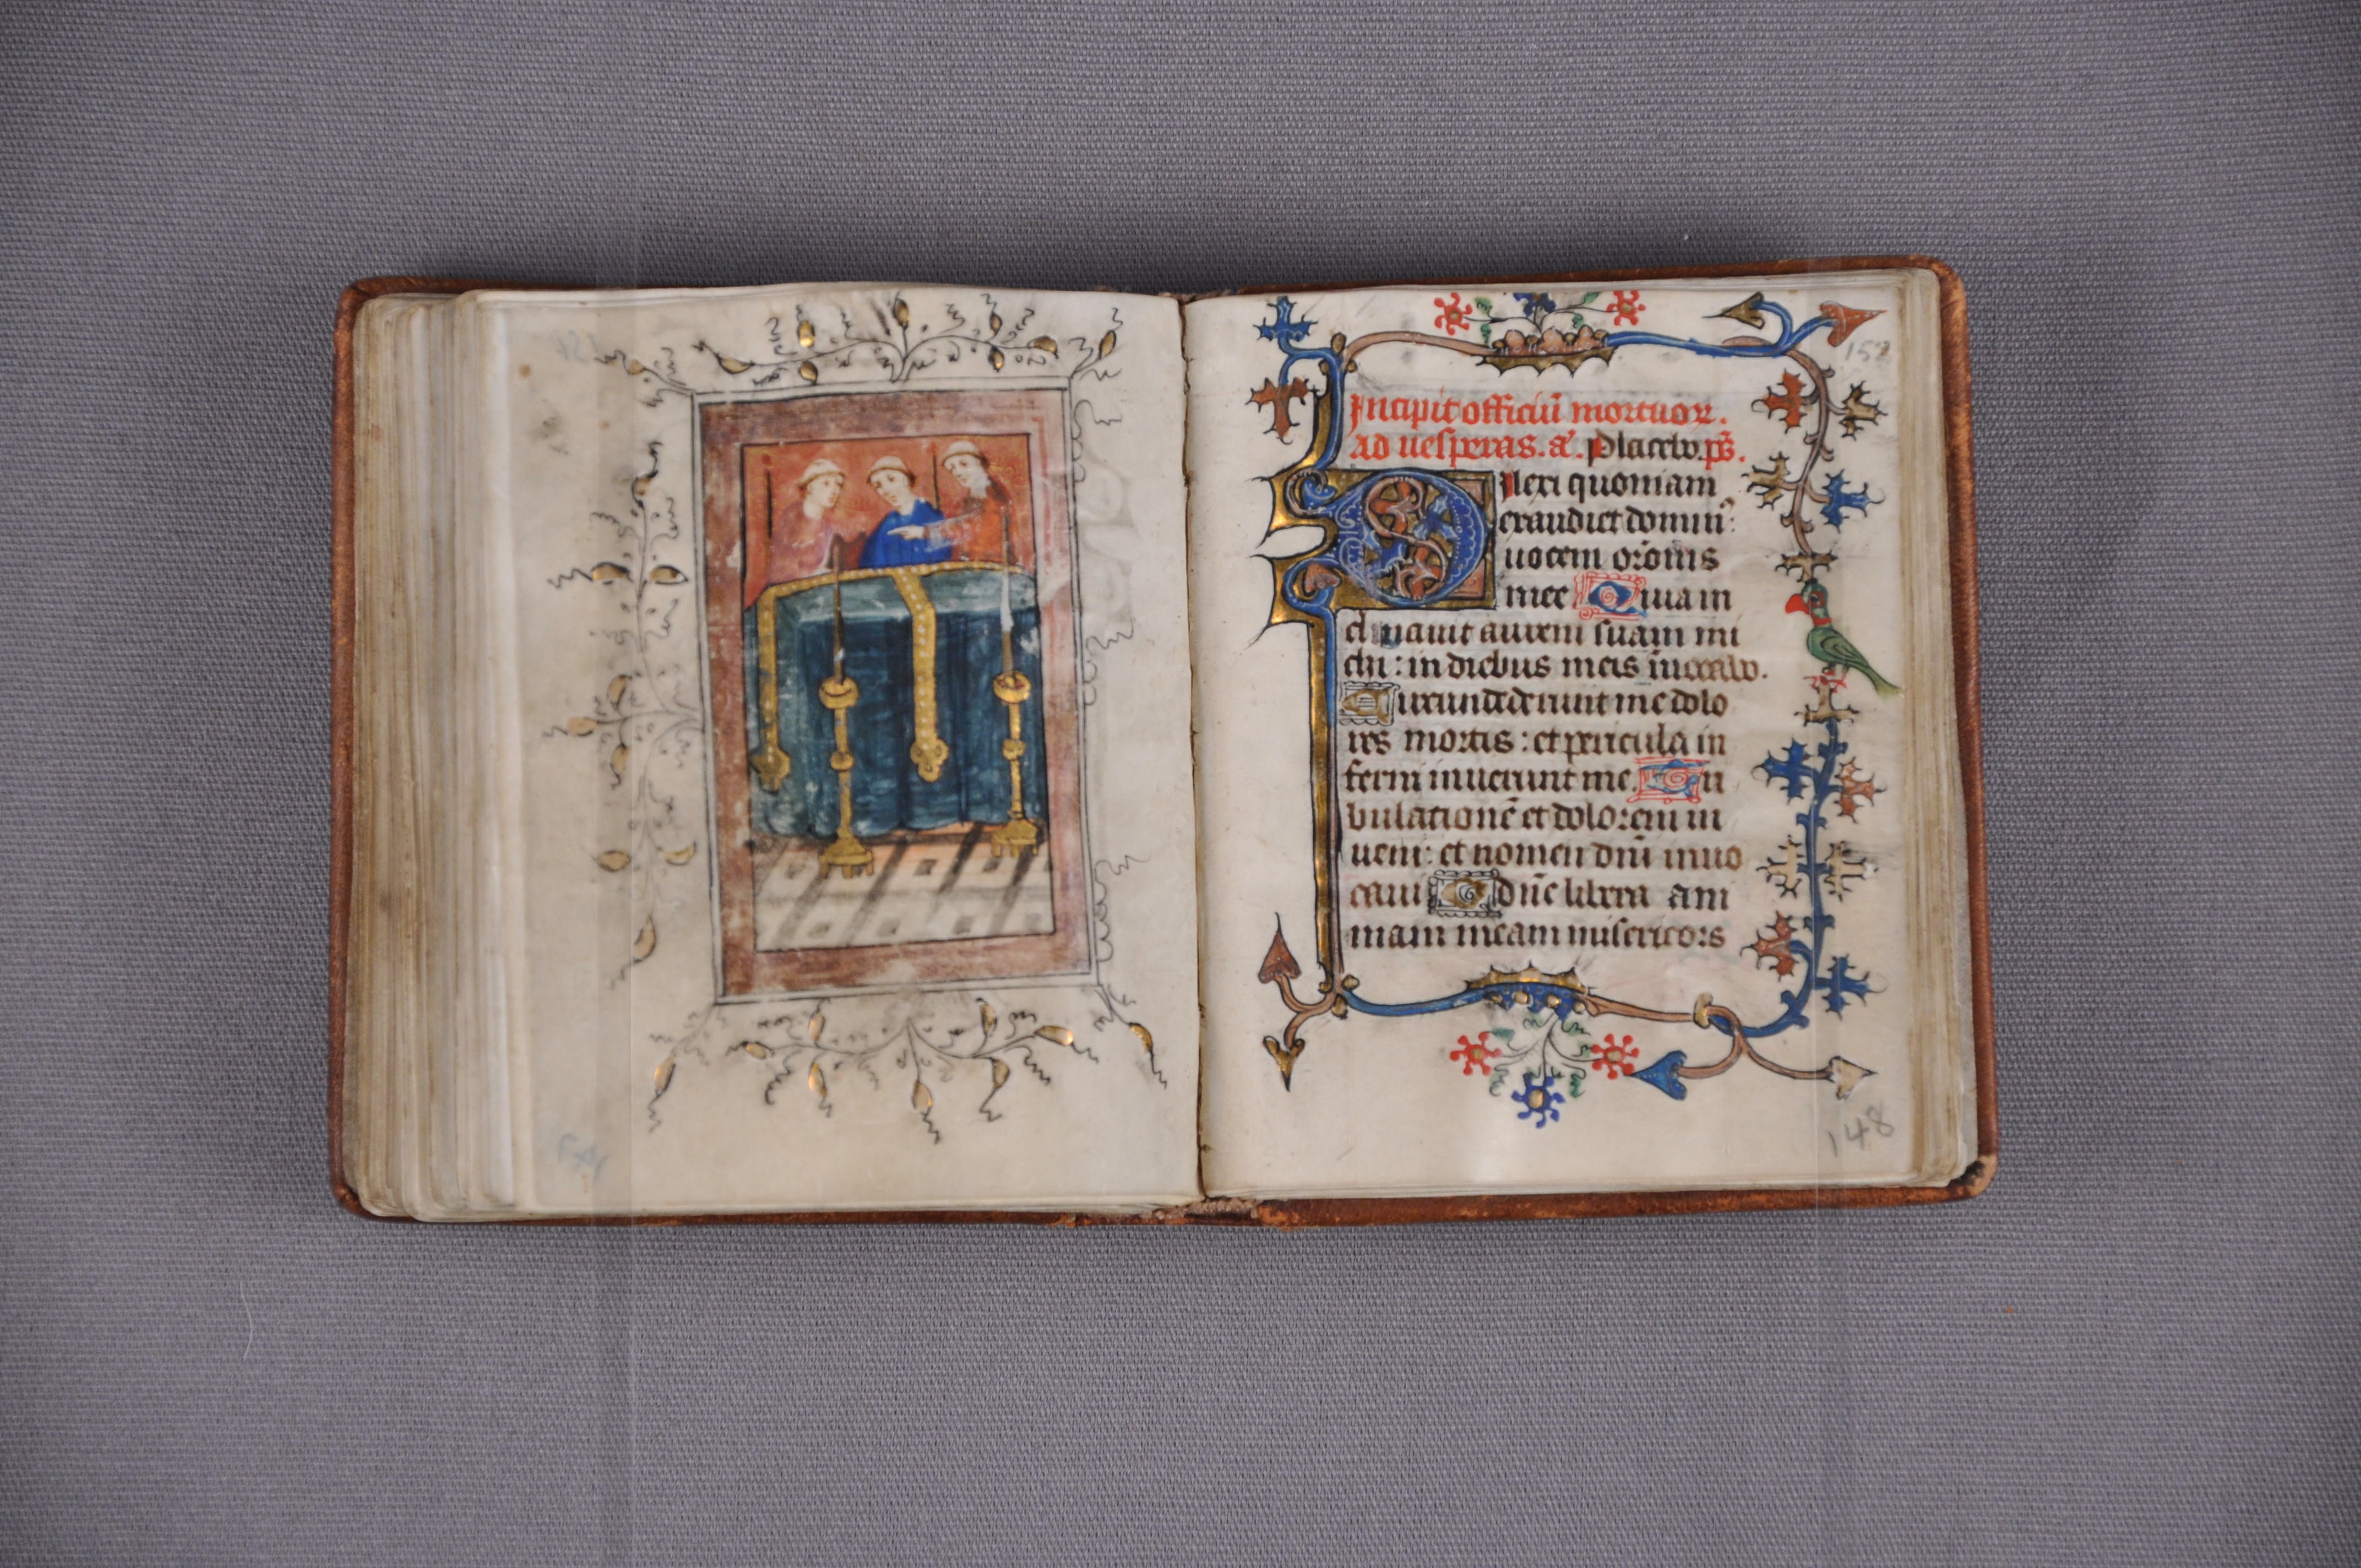 Incipit officiū mortuoꝝ.
ad uesperas. a̓. Placebo. p̄s.
Dilexi quoniam
exaudiet domin᷒:
uocem or̄onis
mee Quia in
clinauit aurem suam mi
chi: in diebus meis inuocabo.
Circundederunt me dolo
res mortis: et pericula in
ferni inuenerunt me. Tri
bulationē et dolorem in
ueni: et nomen dn̄i inuo
caui O dn̄e libera am
mam meam misericors
148